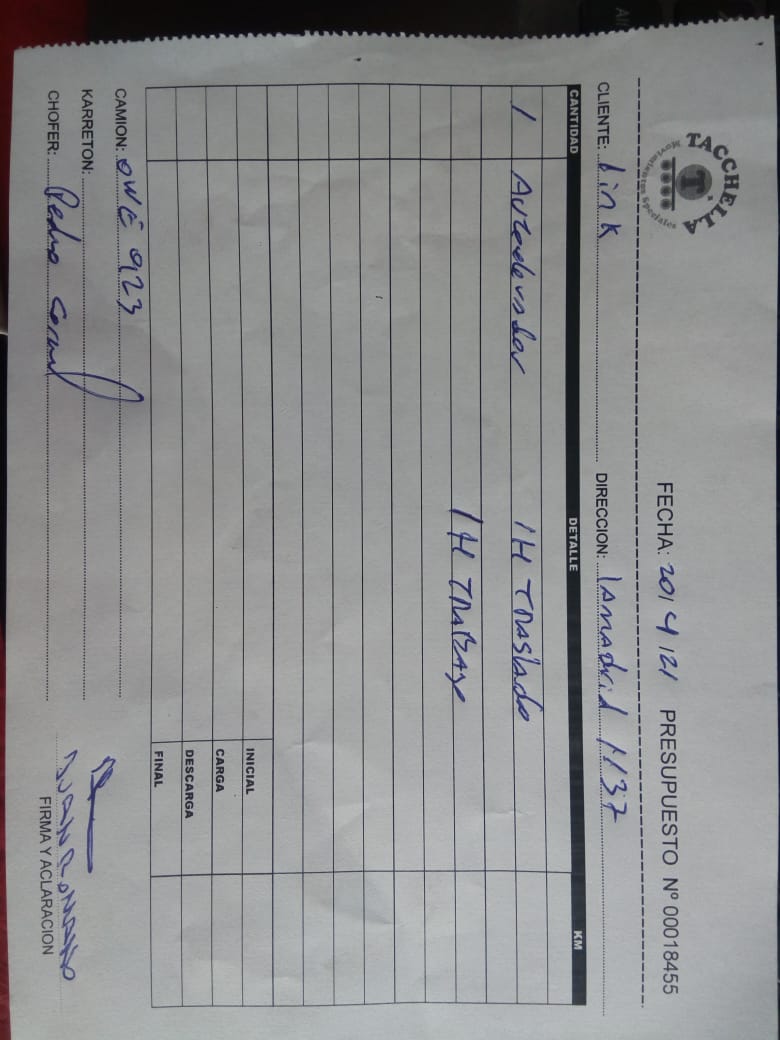 TACCHELLA
FECHA: 20/4/21 PRESUPUESTO Nº 00018455
CLIENTE: Link DIRECCION: lamadrid 1137
CANTIDAD DETALLE KM
1 Autoelevador 1H TRASlado
1H TRABAJO
INICIAL
CARGA
DESCARGA
FINAL
CAMION: OWE 923
KARRETON:
CHOFER: Pedro
JUAN ROMANO
FIRMA Y ACLARACION